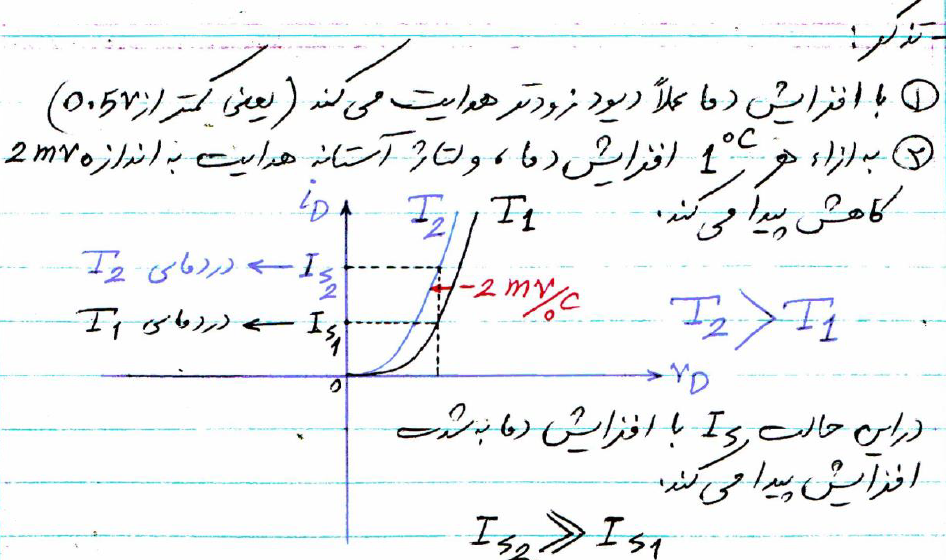 - تذکر:
① با افزایش دما عملاً دیود زودتر هدایت می‌کند (یعنی کمتر از 0.5v)
② به ازاء هر 1°C افزایش دما، ولتاژ آستانه هدایت به اندازه 2mv
کاهش پیدا می‌کند.
iD T2 T1
در دمای T2 ← Is2
-2 mv/°C
T2 > T1
در دمای T1 ← Is1
0
vD
در این حالت Is با افزایش دما به شدت
افزایش پیدا می‌کند.
Is2 ≫ Is1